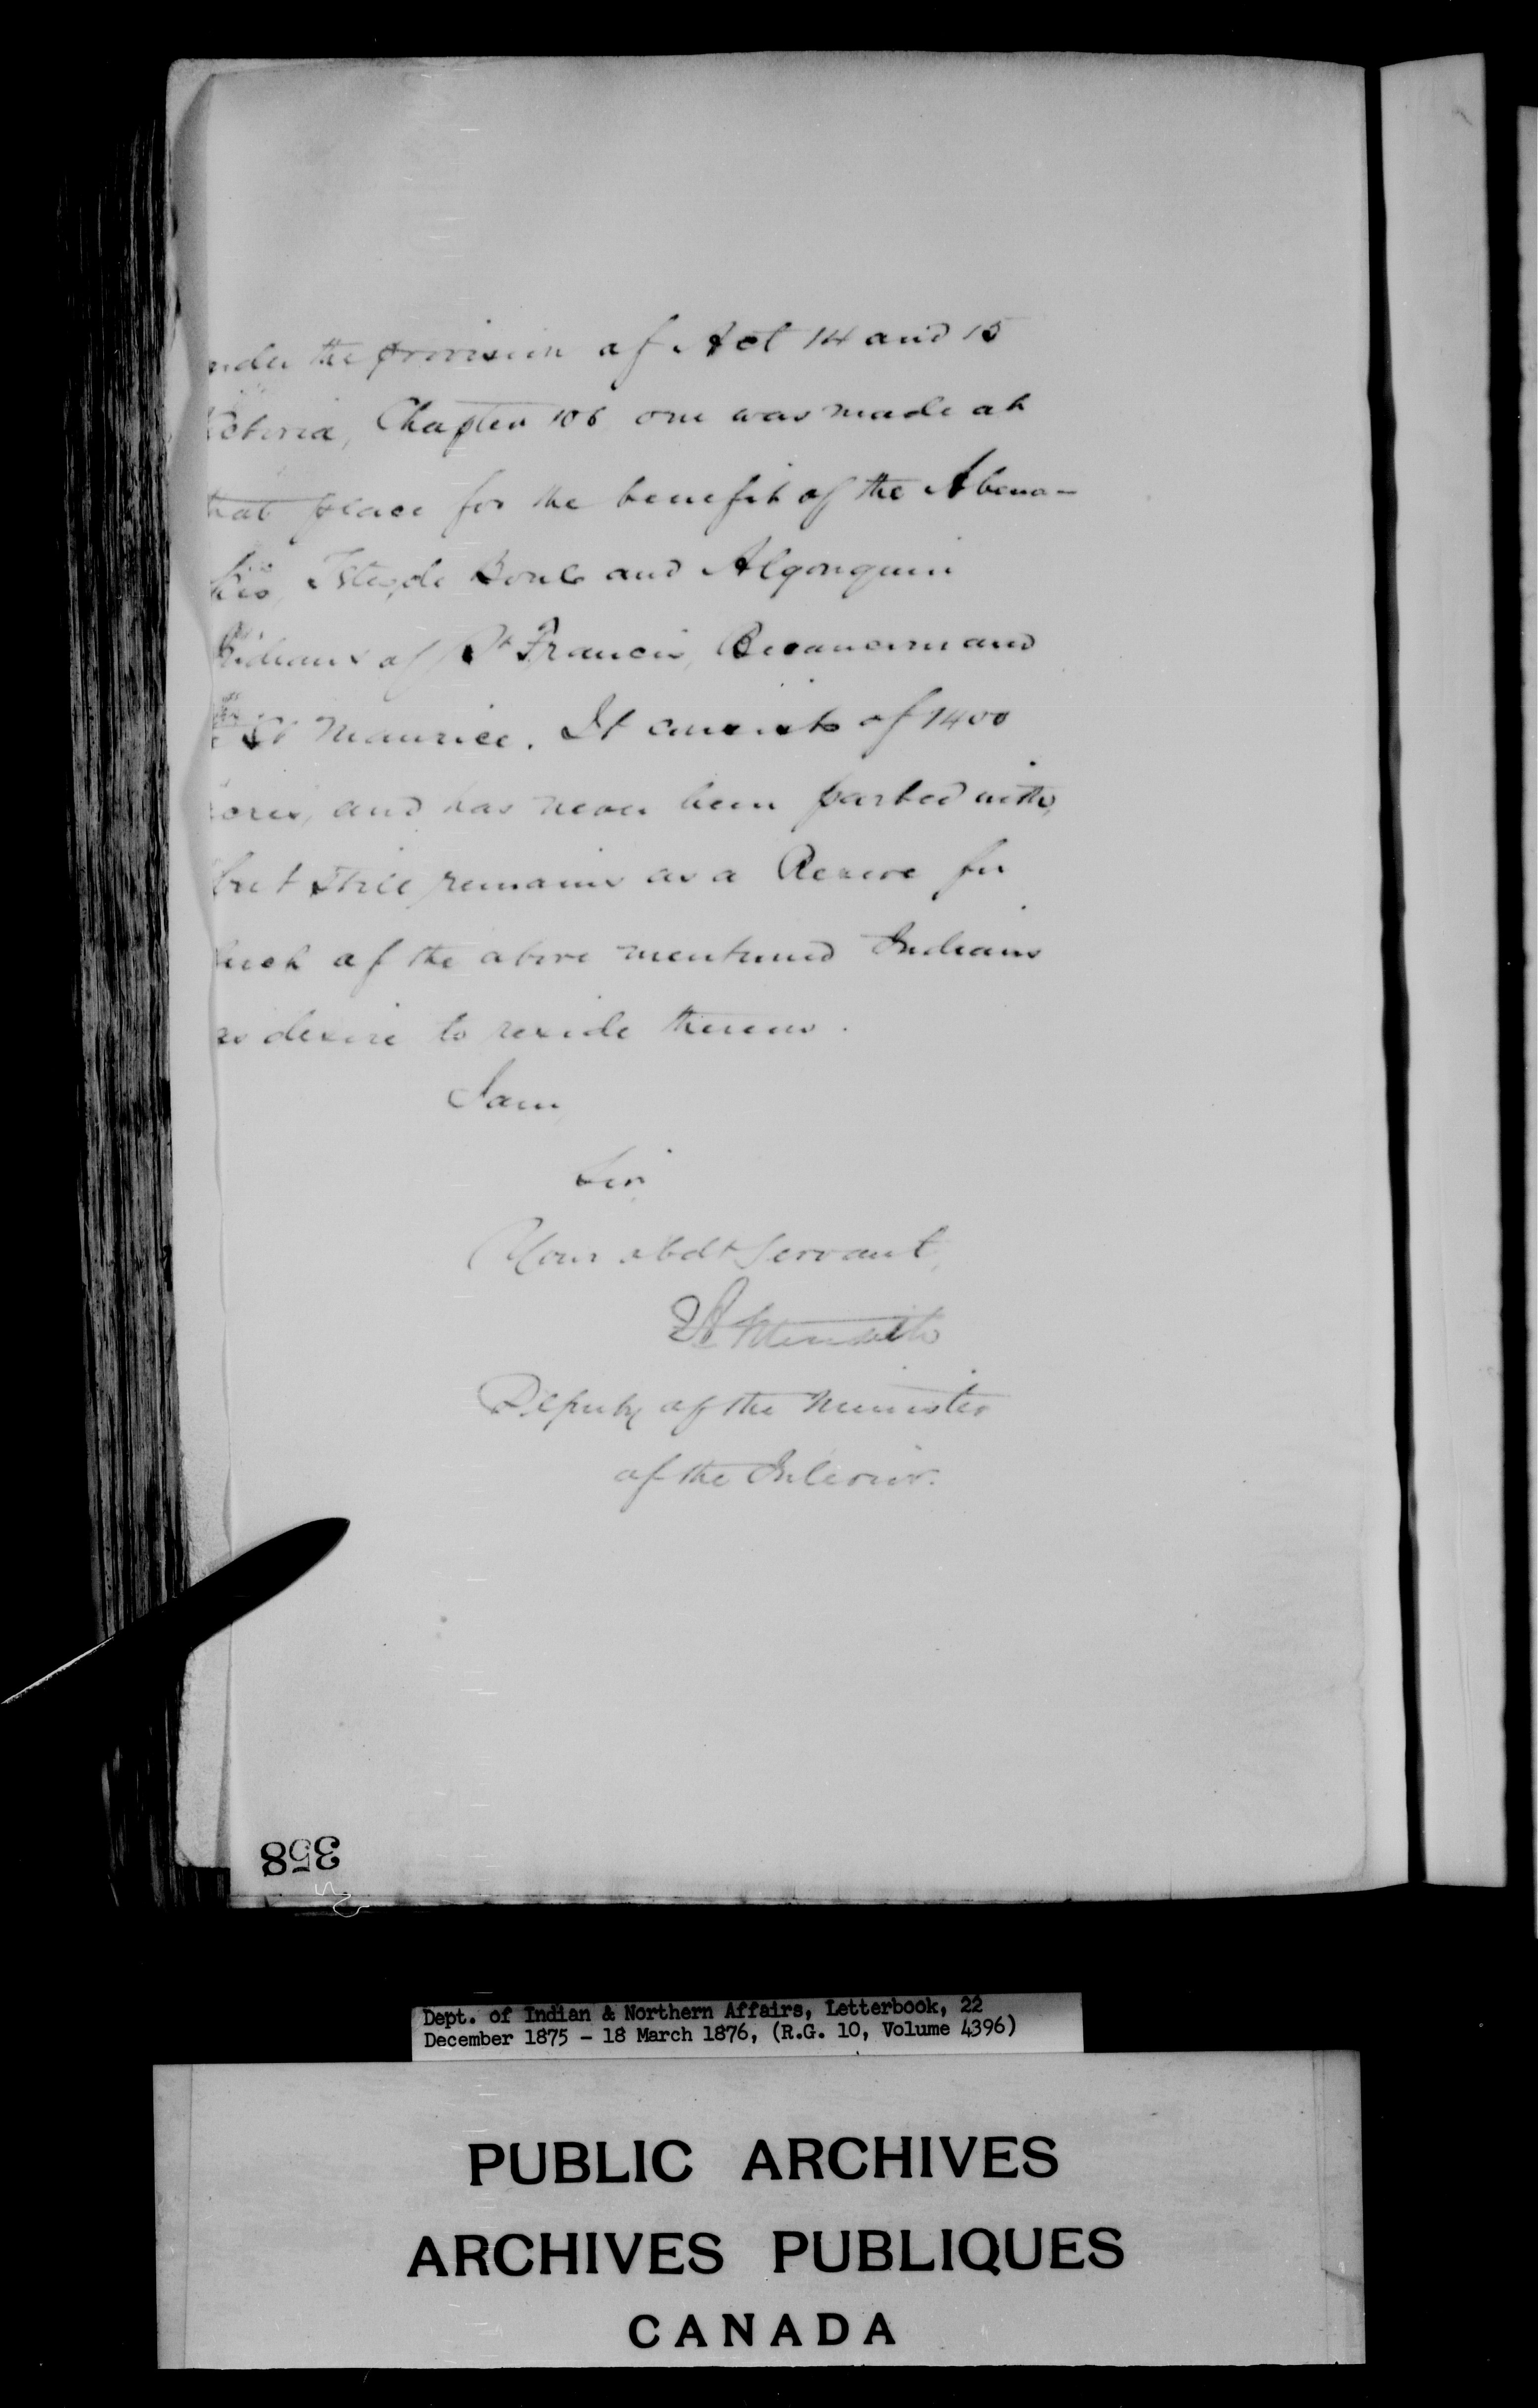 nder the provision of Act 14 and 15
ictoria, Chapter 106 one was made at
hat place for the benefit of the Abena-
kis, Tête de Boule and Algonquin
Indians of St Francis, Becancour and
St Maurice. It consists of 1400
cres, and has never been parted with,
but still remains as a Reserve for
such of the above mentioned Indians
as desire to reside thereon.
I am
Sir
Your obdt Servant,
EA Meredith
Deputy of the Minister
of the Interior.
358
Dept. of Indian & Northern Affairs, Letterbook, 22
December 1875 - 18 March 1876, (R.G. 10, Volume 4396)
PUBLIC ARCHIVES
ARCHIVES PUBLIQUES
CANADA